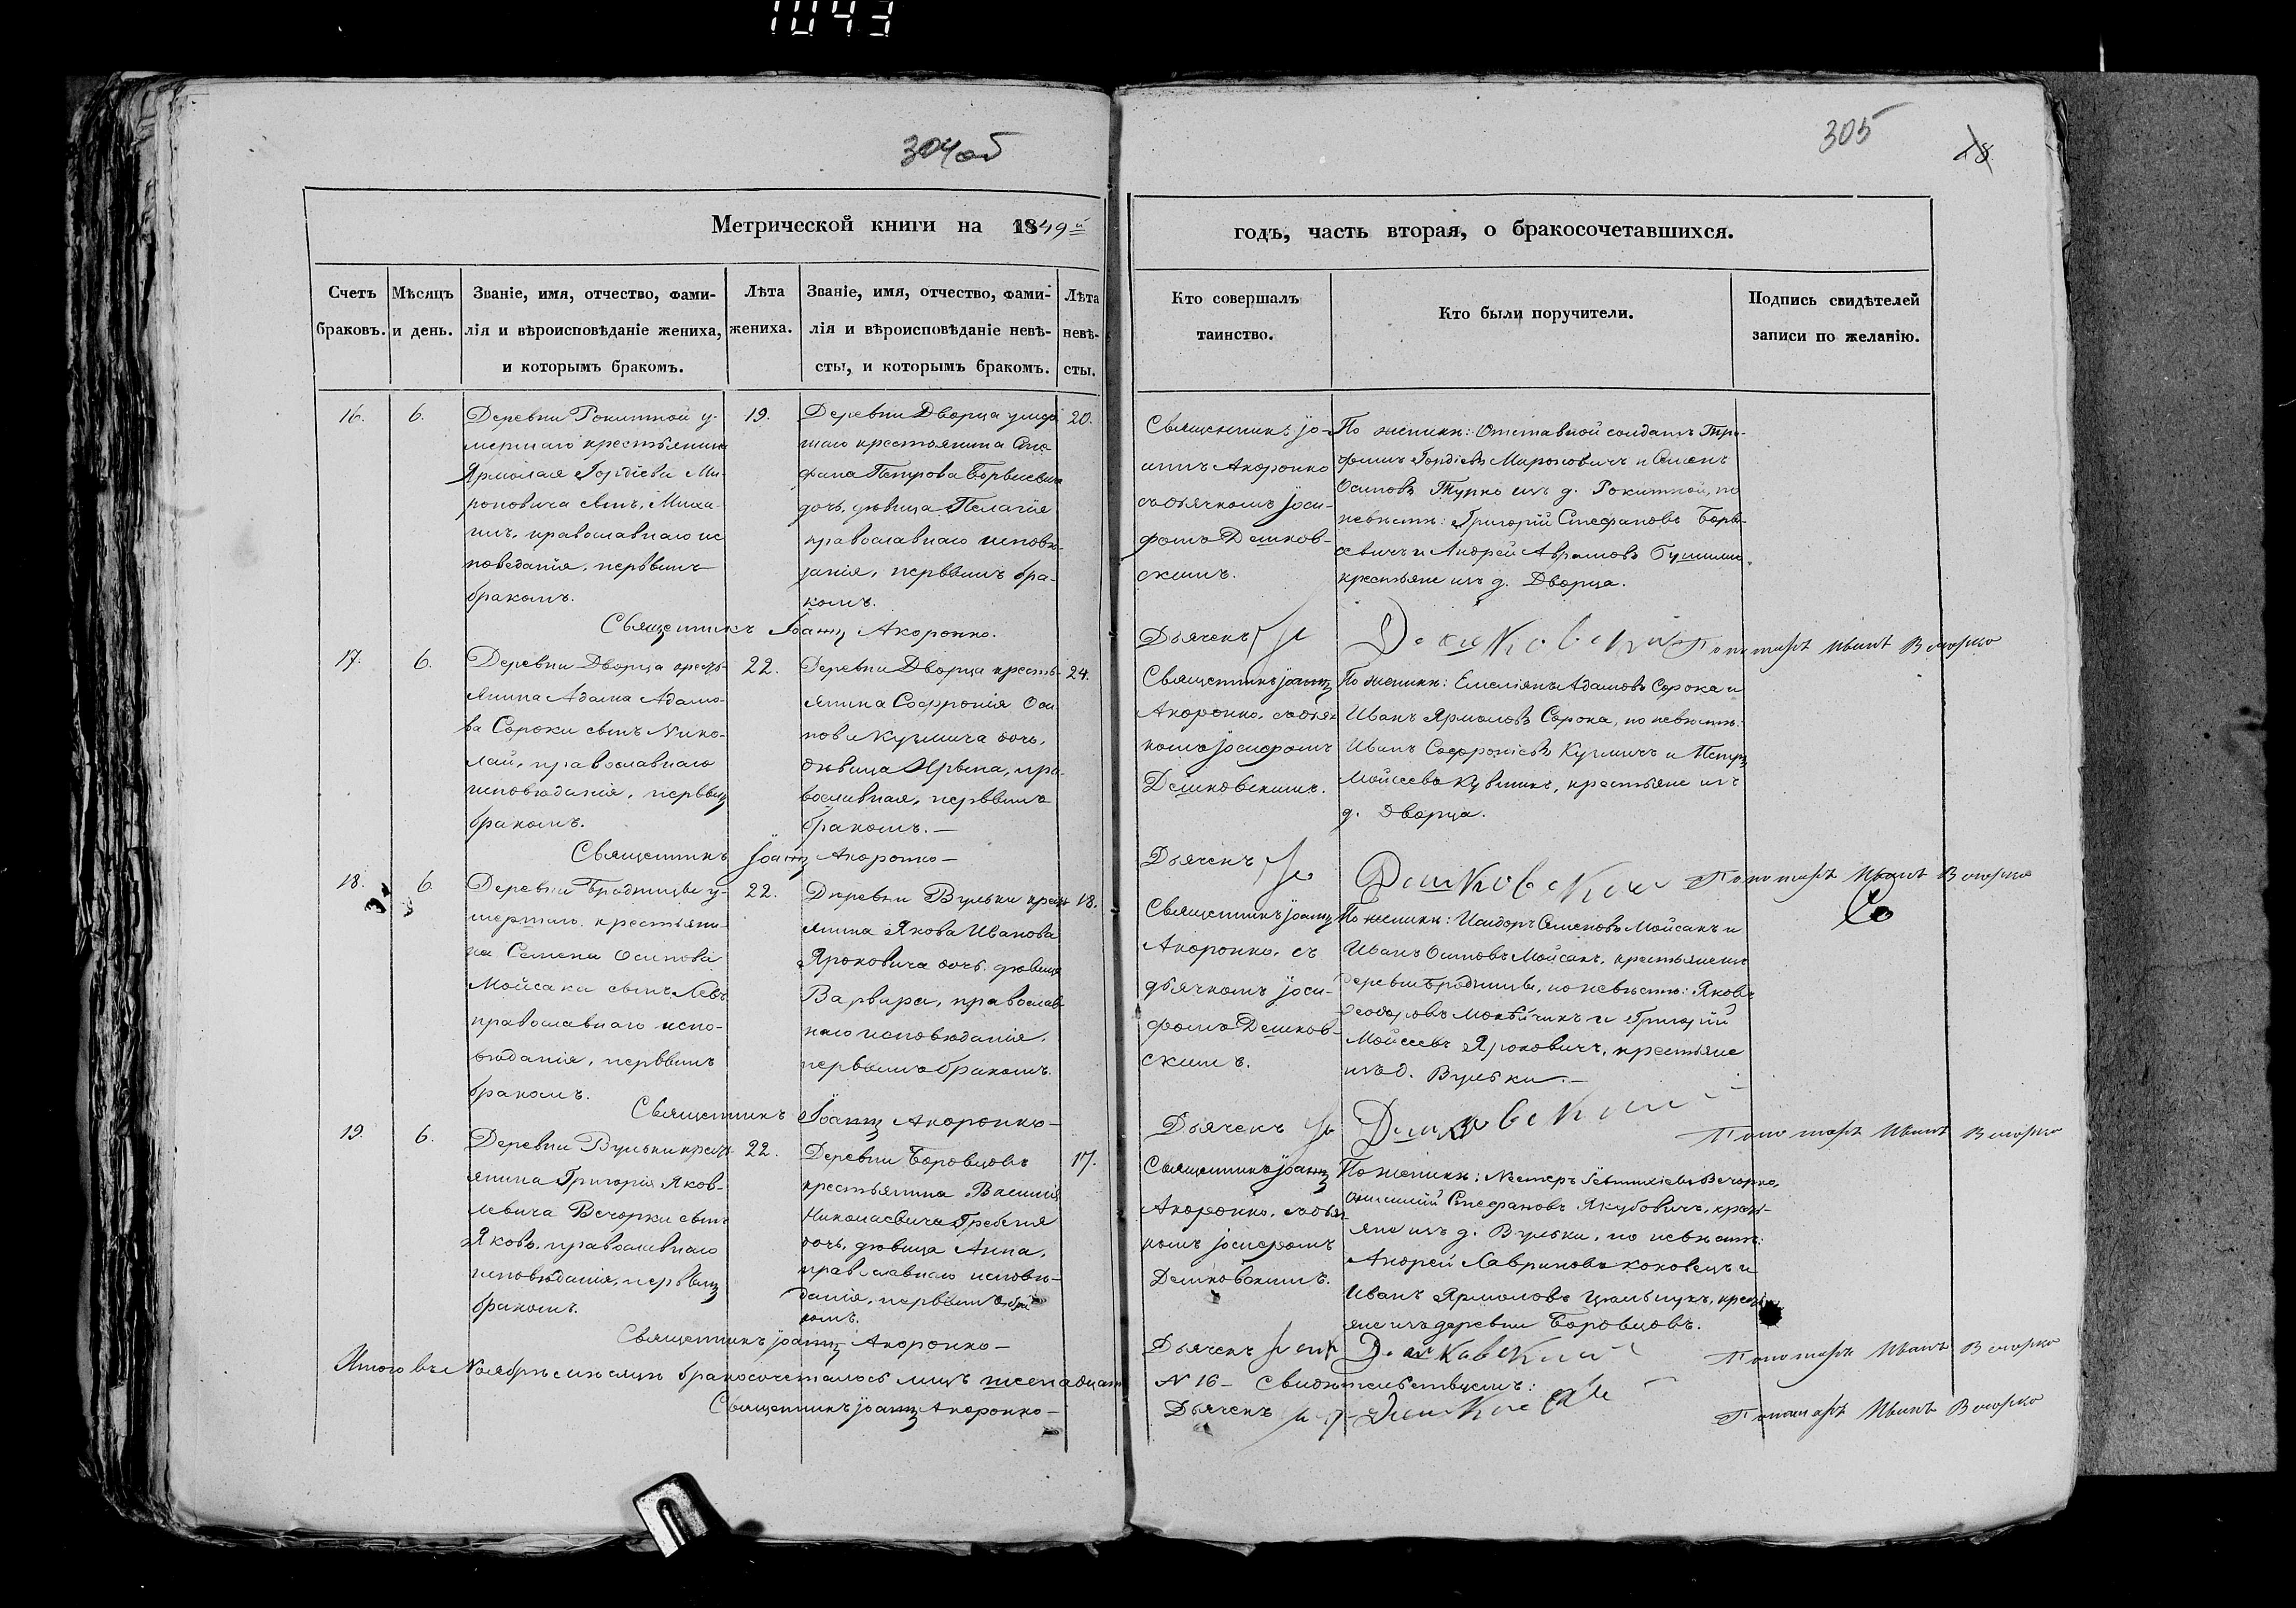 1043
304 об
305
28
Метрической книги на 1849й
годъ, часть вторая, о бракосочетавшихся.
Счетъ браковъ.
Мѣсяцъ и день.
Званіе, имя, отчество, фами-
лія и вѣроисповѣданіе жениха,
и которымъ бракомъ.
Лѣта
жениха.
Званіе, имя, отчество, фами-
лія и вѣроисповѣданіе невѣ-
сты, и которымъ бракомъ.
Лѣта
невѣ-
сты.
Кто совершалъ
таинство.
Кто были поручители.
Подпись свидѣтелей
записи по желанію.
16.
6.
Деревни Рокитной у-
мершаго крестьянина
Ярмолая Гордіева Ми-
роновича сынъ, Миха-
илъ, православнаго ис
поведанія, первымъ
бракомъ.
19.
Деревни Дворца умер
шаго крестьянина Сте
фана Петрова Борвисевича
дочь, девица Пелагія
православнаго исповѣ-
данія, первымъ бра-
комъ.
20.
Священникъ Іо-
аннъ Акоронко
съ дьячкомъ Іоси-
фомъ Дешков-
скимъ.
По женихѣ: Отставной солдатъ Тро-
фимъ Гордіевъ Мироновичъ и Семенъ
Осиповъ Турко изъ д. Рокитной, по
невѣстѣ: Григорій Стефановъ Борви-
севичъ и Андрей Абрамовъ
крестьяне изъ д. Дворца.
Священникъ Іоаннъ Акоронко.
Дьячекъ Дешковскій
Пономаръ Иванъ Вечорко
17.
6.
Деревни Дворца кресть-
янина Адама Адамо-
ва Сороки сынъ Нико-
лай, православнаго
исповѣданія, первымъ
бракомъ.
22.
Деревни Дворца кресть-
янина Софронія Оси
пова Кузмича дочь,
дѣвица Ирына, пра-
вославная, первымъ
бракомъ. —
24.
Священникъ Іоаннъ
Акоронко, съ дьяч
комъ Іосифомъ
Дешковскимъ.
По женихѣ: Емеліянъ Адамовъ Сорока и
Иванъ Ярмоловъ Сорока, по невѣстѣ:
Иванъ Софроніевъ Кузмичъ и Петръ
Мойсеевъ, крестьяне изъ
д. Дворца.
Священникъ Іоаннъ Акоронко —
Дьячекъ Дешковскій
Пономаръ Иванъ Вечорко
18.
6.
Деревни Бродницы у-
мершаго крестьяни-
на Семена Осипова
Мойсака сынъ Левъ
православнаго испо-
вѣданія, первымъ
бракомъ.
22.
Деревни Вульки крест
янина Якова Иванова
Яроковича дочь, дѣвица
Варвара, православ-
наго исповѣданія,
первымъ бракомъ.
18.
Священникъ Іоаннъ
Акоронко, съ
дьячкомъ Іоси-
фомъ Дешков-
скимъ.
По женихѣ: Исидоръ Семеновъ Мойсакъ и
Иванъ Осиповъ Мойсакъ, крестьянемъ
деревни Бродницы, по невѣстѣ: Яковъ
Феодоровъ и Григорій
Мойсеевъ Яроковичъ, крестьяне
изъ д. Вульки. —
Священникъ Іоаннъ Акоронко —
Дьячекъ Дешковскій
Пономаръ Иванъ Вечорко
19.
6.
Деревни Вульки крест
янина Григорія Яков-
левича Вечорки сынъ
Яковъ, православнаго
исповѣданія, первымъ
бракомъ.
22.
Деревни Боровцовъ
крестьянина Василія
Николаевича Гребеня
дочь, дѣвица Анна,
православнаго исповѣ-
данія, первымъ бра
комъ.
17.
Священникъ Іоаннъ
Акоронко, съ дьяч
комъ Іосифомъ
Дешковскимъ.
По женихѣ: Нестеръ Вечорко,
Стефановъ Якубовичъ, крест-
яне изъ д. Вульки, по невѣстѣ:
Андрей Лавриновъ Коковецъ и
Иванъ Ярмоловъ, кресть
яне изъ деревни Боровцовъ.
Священникъ Іоаннъ Акоронко —
Дьячекъ Дешковскій
Пономаръ Иванъ Вечорко
Итого въ Ноябрѣ мѣсяцѣ бракосочеталось лицъ шеснадцать
N 16 — Свидѣтельствуемъ:
Священникъ Іоаннъ Акоронко —
Дьячекъ Дешковскій
Пономаръ Иванъ Вечорко